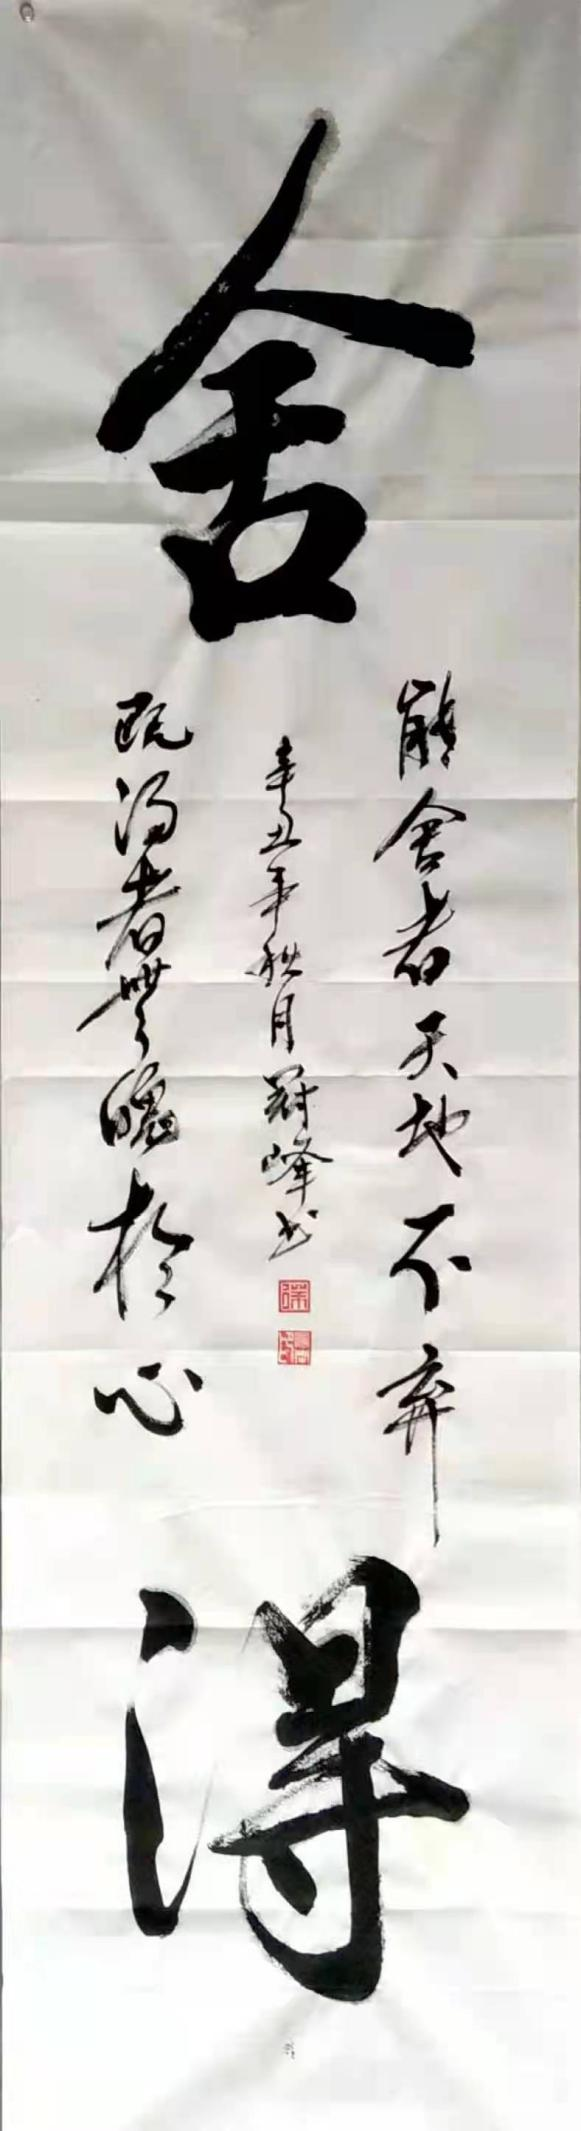 舍
能舍者天地不弃
辛丑年秋月冠峰书
既得者無愧於心
得